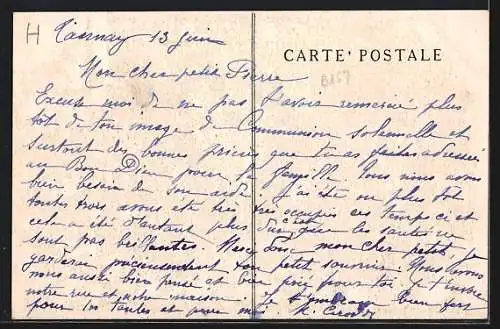 H
13 Juin
CARTE POSTALE
B157
Mon cher petit Pierre
Excuse moi de ne pas t'avoir remercié plus
tôt de ton image de Communion solennelle et
surtout des bonnes prières que tu as faites adressées
au Bon Dieu pour la famille. Nous avons
bien besoin de son aide. j'ai été ou plus tôt
toutes trois avons été très très occupées ces temps ci et
cela a été d'autant plus dur que les santés ne
sont pas Merci donc mon cher petit, je
garderai précieusement ton petit souvenir. Nous avons
nous aussi bien pensé et bien prié pour toi
notre rue et notre maison. Je t'embrasse bien fort
pour les tantes et pour moi